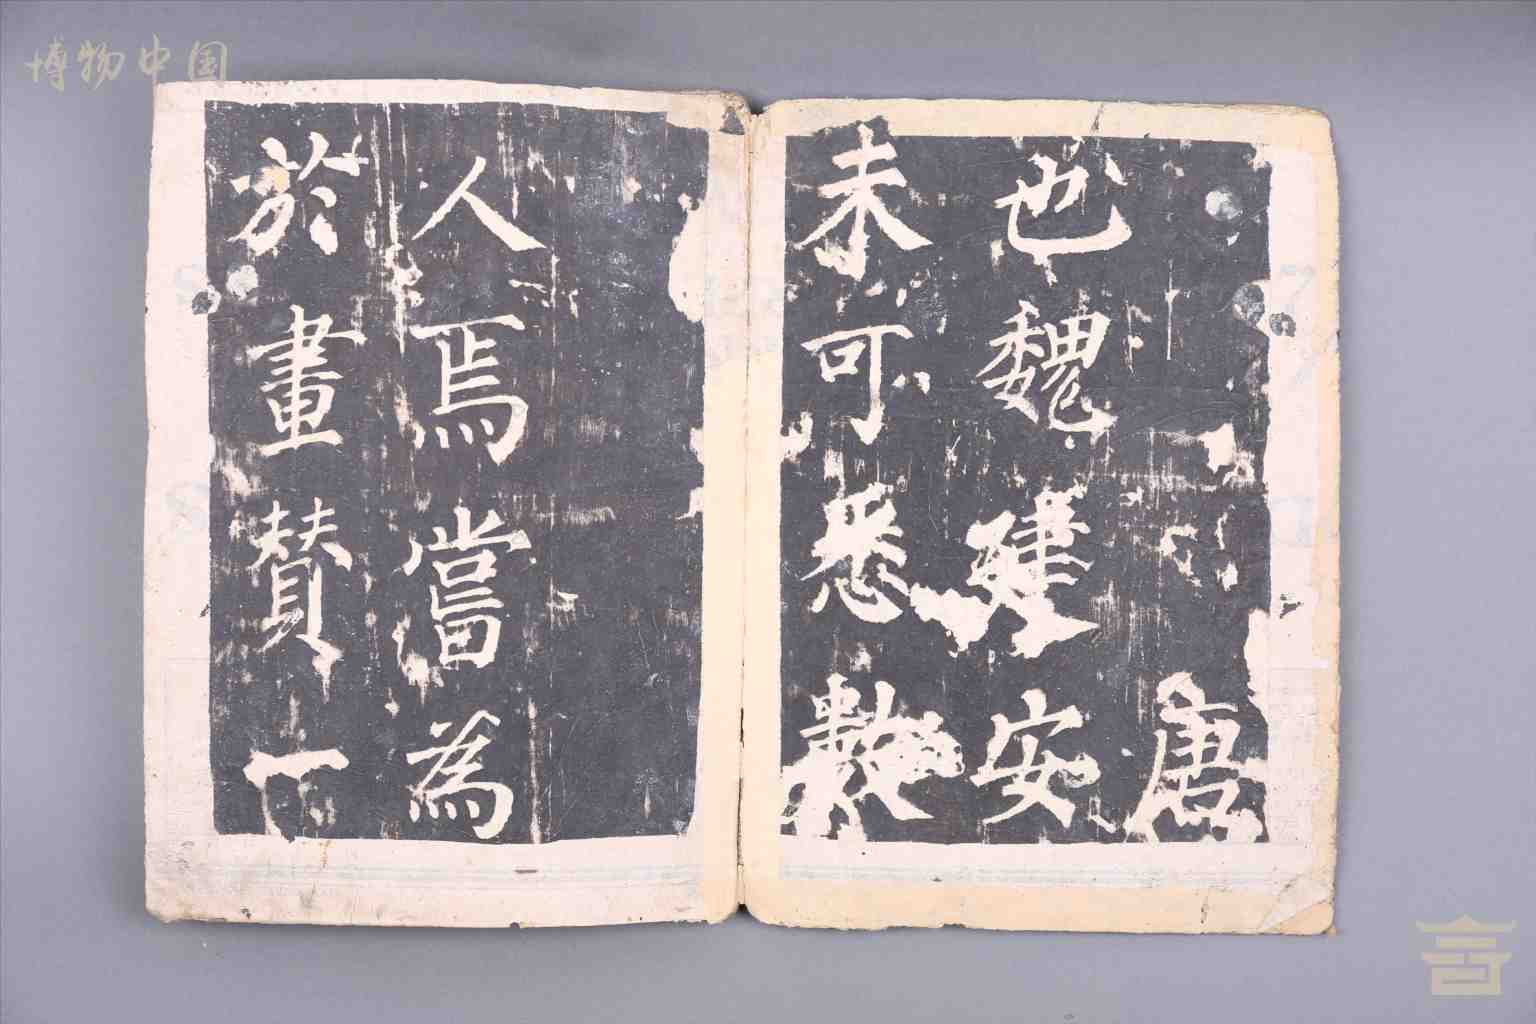 博物中国
唐
也魏建安
未可悉數
人焉當為
於畫贊丁